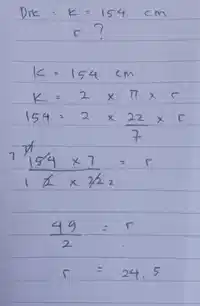 Dik . K = 154 cm
r ?
K = 154 cm
K = 2 × π × r
154 = 2 × 22/7 × r
7 77
154 × 7 = r
1 2 × 22 2
49/2 = r
r = 24,5